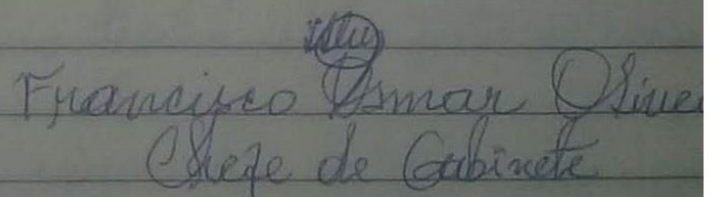 Francisco Osmar Olivei
Chefe de Gabinete